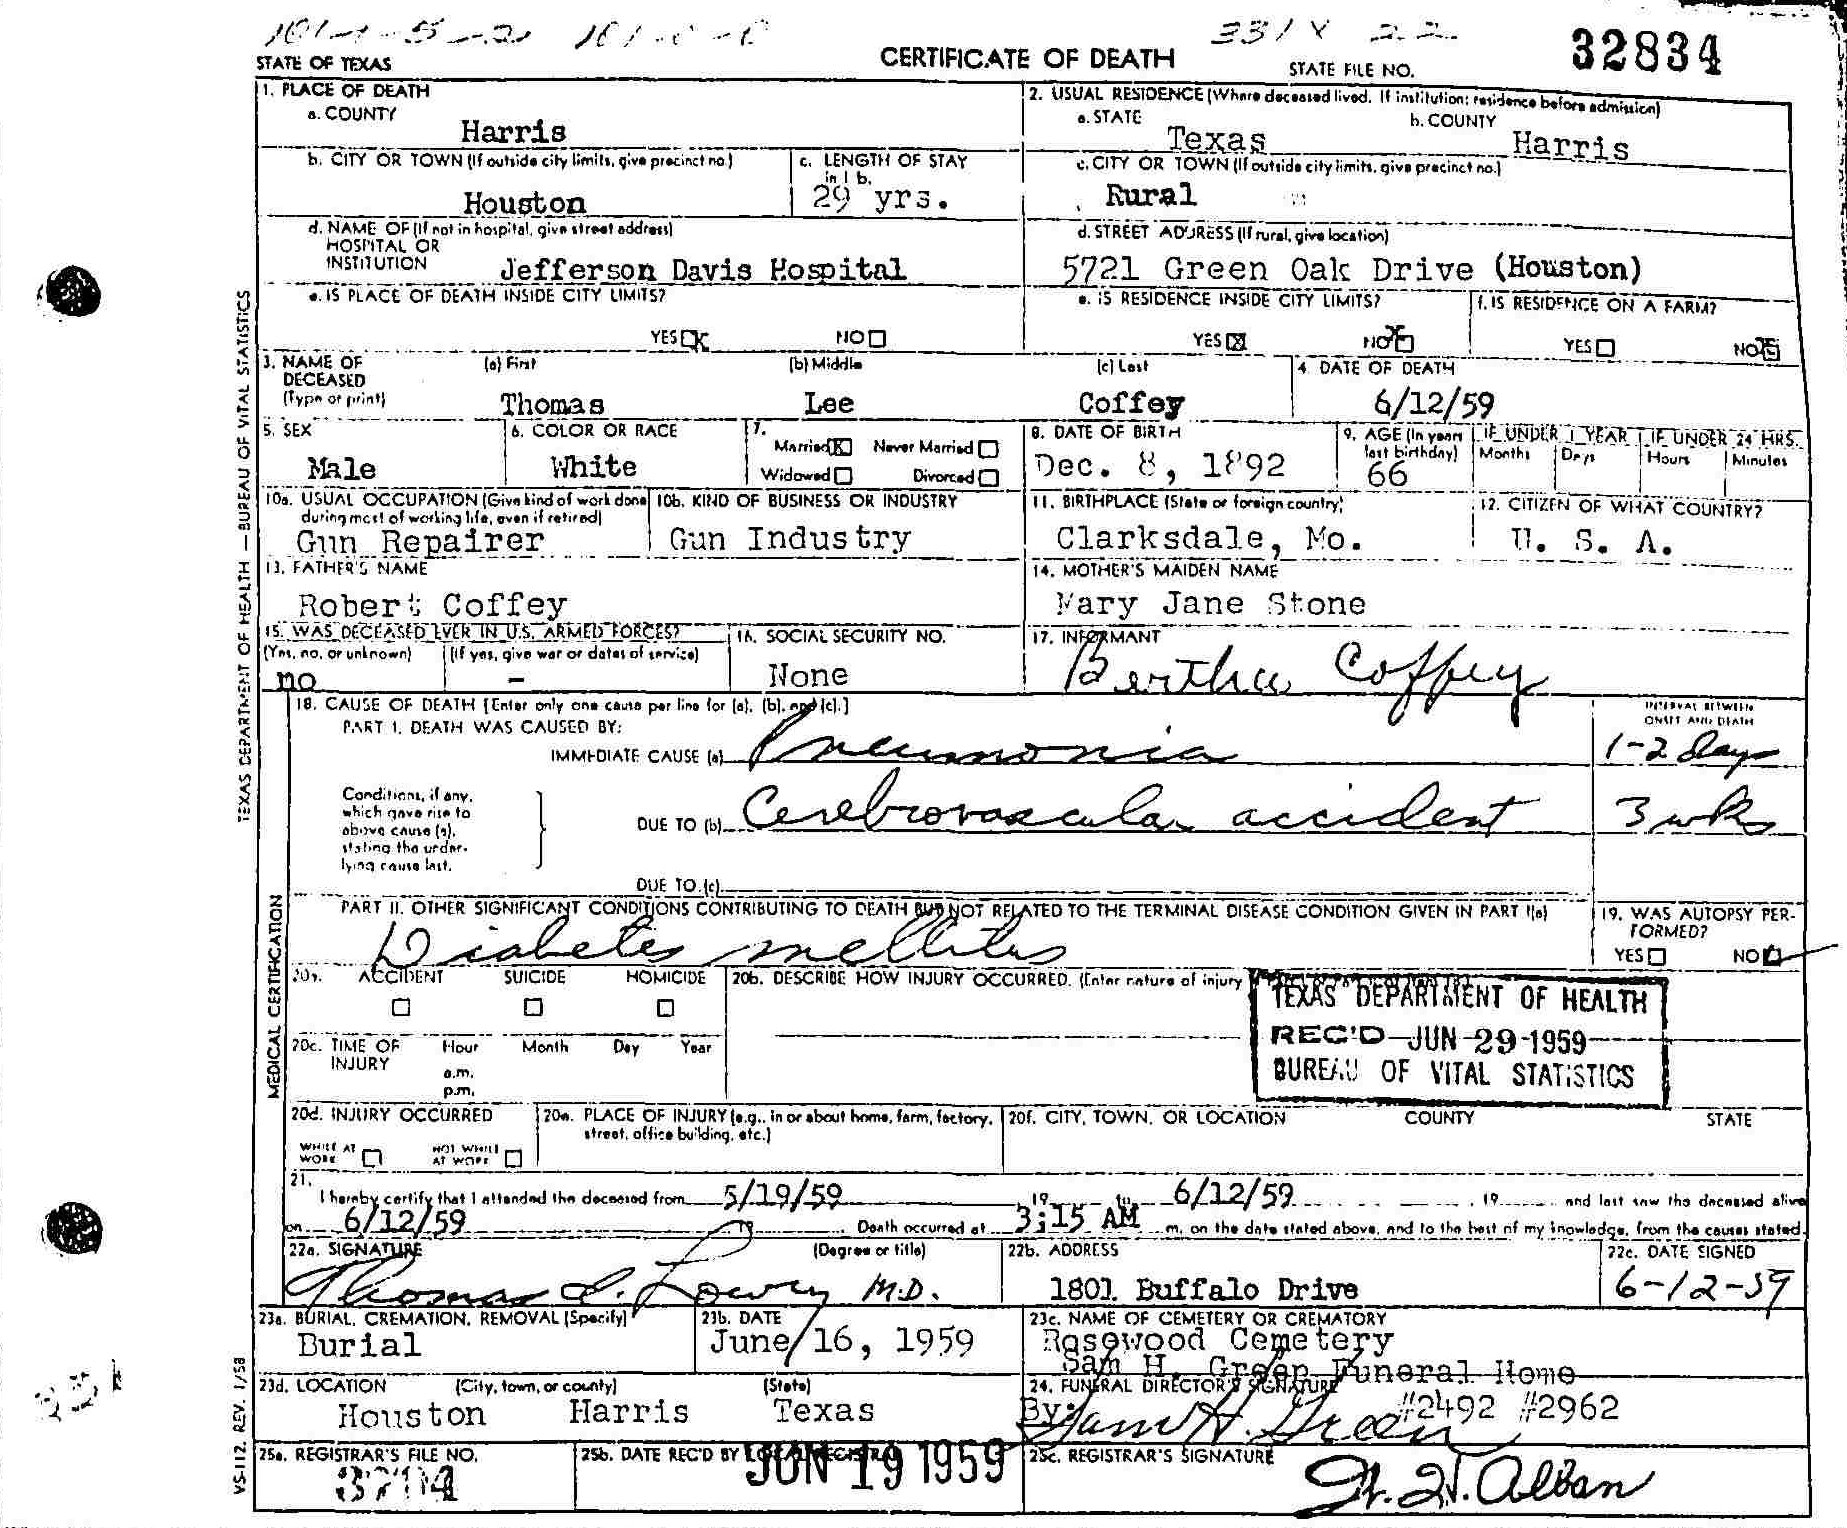 STATE OF TEXAS
CERTIFICATE OF DEATH
331X 22
STATE FILE NO. 32834
1. PLACE OF DEATH
a. COUNTY
Harris
2. USUAL RESIDENCE (Where deceased lived. If institution: residence before admission)
a. STATE
Texas
b. COUNTY
Harris
b. CITY OR TOWN (If outside city limits, give precinct no.)
Houston
c. LENGTH OF STAY in 1 b.
29 yrs.
c. CITY OR TOWN (If outside city limits, give precinct no.)
Rural
d. NAME OF (If not in hospital, give street address)
HOSPITAL OR
INSTITUTION
Jefferson Davis Hospital
d. STREET ADDRESS (If rural, give location)
5721 Green Oak Drive (Houston)
e. IS PLACE OF DEATH INSIDE CITY LIMITS?
YES X NO
e. IS RESIDENCE INSIDE CITY LIMITS?
YES X NO X
f. IS RESIDENCE ON A FARM?
YES NO X
3. NAME OF
DECEASED
(Type or print)
(a) First
Thomas
(b) Middle
Lee
(c) Last
Coffey
4. DATE OF DEATH
6/12/59
5. SEX
Male
6. COLOR OR RACE
White
7.
Married X Never Married
Widowed Divorced
8. DATE OF BIRTH
Dec. 8, 1892
9. AGE (In years last birthday)
66
IF UNDER 1 YEAR
Months Days
IF UNDER 24 HRS.
Hours Minutes
10a. USUAL OCCUPATION (Give kind of work done
during most of working life, even if retired)
Gun Repairer
10b. KIND OF BUSINESS OR INDUSTRY
Gun Industry
11. BIRTHPLACE (State or foreign country)
Clarksdale, Mo.
12. CITIZEN OF WHAT COUNTRY?
U. S. A.
13. FATHER'S NAME
Robert Coffey
14. MOTHER'S MAIDEN NAME
Mary Jane Stone
15. WAS DECEASED EVER IN U.S. ARMED FORCES?
(Yes, no, or unknown)
no
(If yes, give war or dates of service)
-
16. SOCIAL SECURITY NO.
None
17. INFORMANT
Bertha Coffey
18. CAUSE OF DEATH [Enter only one cause per line for (a), (b), and (c).]
INTERVAL BETWEEN
ONSET AND DEATH
PART I. DEATH WAS CAUSED BY:
IMMEDIATE CAUSE (a) Pneumonia
1-2 days
Conditions, if any,
which gave rise to
above cause (a),
stating the under-
lying cause last.
DUE TO (b) Cerebrovascular accident
3 wks
DUE TO (c)
PART II. OTHER SIGNIFICANT CONDITIONS CONTRIBUTING TO DEATH BUT NOT RELATED TO THE TERMINAL DISEASE CONDITION GIVEN IN PART I(a)
Diabetes mellitus
19. WAS AUTOPSY PER-
FORMED?
YES NO
20a. ACCIDENT SUICIDE HOMICIDE
20b. DESCRIBE HOW INJURY OCCURRED. (Enter nature of injury
TEXAS DEPARTMENT OF HEALTH
REC'D JUN 29 1959
BUREAU OF VITAL STATISTICS
20c. TIME OF
INJURY
Hour Month Day Year
a.m.
p.m.
20d. INJURY OCCURRED
WHILE AT
WORK
NOT WHILE
AT WORK
20e. PLACE OF INJURY (e.g., in or about home, farm, factory,
street, office building, etc.)
20f. CITY, TOWN, OR LOCATION COUNTY STATE
21.
I hereby certify that I attended the deceased from 5/19/59 19 to 6/12/59, 19 and last saw the deceased alive
on 6/12/59 19 . Death occurred at 3:15 AM m. on the date stated above, and to the best of my knowledge, from the causes stated.
22a. SIGNATURE (Degree or title)
Thomas L. Lowry M.D.
22b. ADDRESS
1801 Buffalo Drive
22c. DATE SIGNED
6-12-59
23a. BURIAL, CREMATION, REMOVAL (Specify)
Burial
23b. DATE
June 16, 1959
23c. NAME OF CEMETERY OR CREMATORY
Rosewood Cemetery
23d. LOCATION (City, town, or county) (State)
Houston Harris Texas
Sam H. Green Funeral Home
24. FUNERAL DIRECTOR'S SIGNATURE
By: Sam H. Green #2492 #2962
25a. REGISTRAR'S FILE NO.
25b. DATE REC'D BY LOCAL REGISTRAR
JUN 19 1959
25c. REGISTRAR'S SIGNATURE
TEXAS DEPARTMENT OF HEALTH — BUREAU OF VITAL STATISTICS
MEDICAL CERTIFICATION
VS-112. REV. 1/58